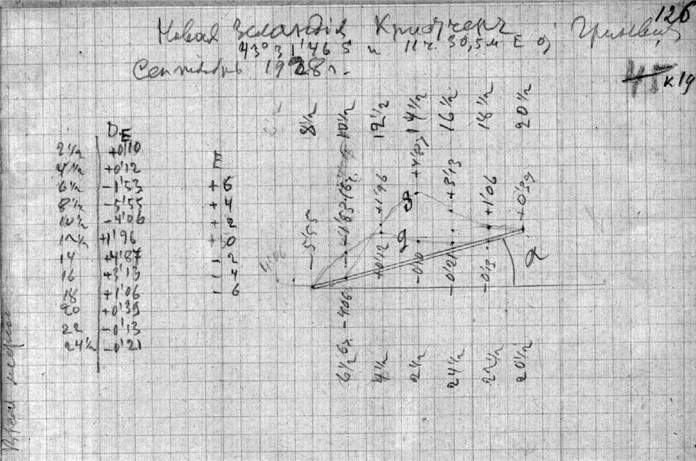 126
Новая Зеландія Кристчерч
43°31'46 S и 11ч. 30,5м E от Гринвич
Сентябрь 1928 г.
45 к 19
D E
2½ +0'10
4½ +0'12 E
6½ -1'53 +6
8½ -5'55 +4
10½ -4'06 +2
12½ +1'96 +0
14 +4'87 -2
16 +3'13 -4
18 +1'06 -6
20 +0'39
22 -0'13
24½ -0'21
8½ 10½ 12½ 14½ 16½ 18½ 20½
-5'55 +1'96 +4'87 +3'13 +1'06 +0'39
-4'06 +0'12 -0'10 -0'21 -0'13
α
6½ 4½ 2½ 24½ 22½ 20½